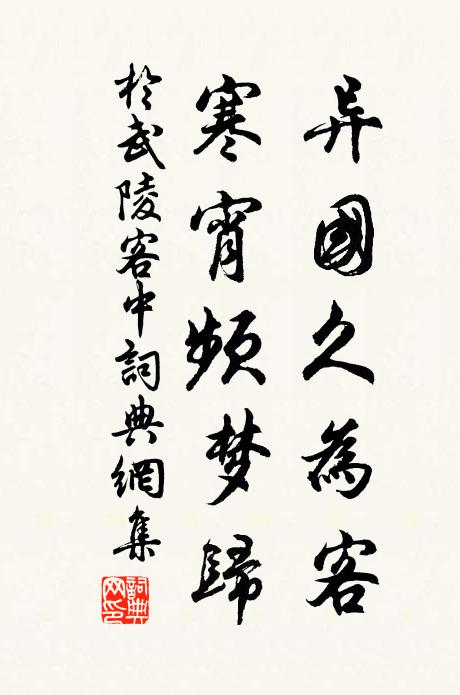 异國久為客
寒宵頻梦歸
於武陵客中詞典網集
詞典网印